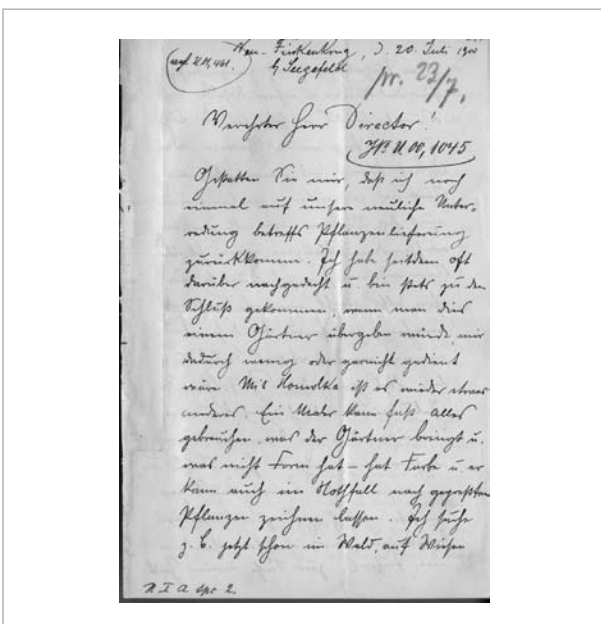 Neu-Finkenkrug, d. 20. Juli 1900
b/ Seegefeld
pr. 23/7.
Verehrter Herr Director!
N° U 00, 1045
Gestatten Sie mir, daß ich noch
einmal auf unsere neuliche Unter-
redung betreffs Pflanzenlieferung
zurückkomme. Ich habe seitdem oft
darüber nachgedacht u. bin stets zu dem
Schluß gekommen, wenn man dies
einem Gärtner übergeben würde, mir
dadurch wenig oder garnicht gedient
wäre. Mit Homolka ist es wieder etwas
anderes. Ein Maler kann fast alles
gebrauchen, was der Gärtner bringt u.
was nicht Form hat – hat Farbe u. er
kann auch im Nothfall nach gepreßten
Pflanzen zeichnen lassen. Ich suche
z. B. jetzt schon im Wald, auf Wiesen